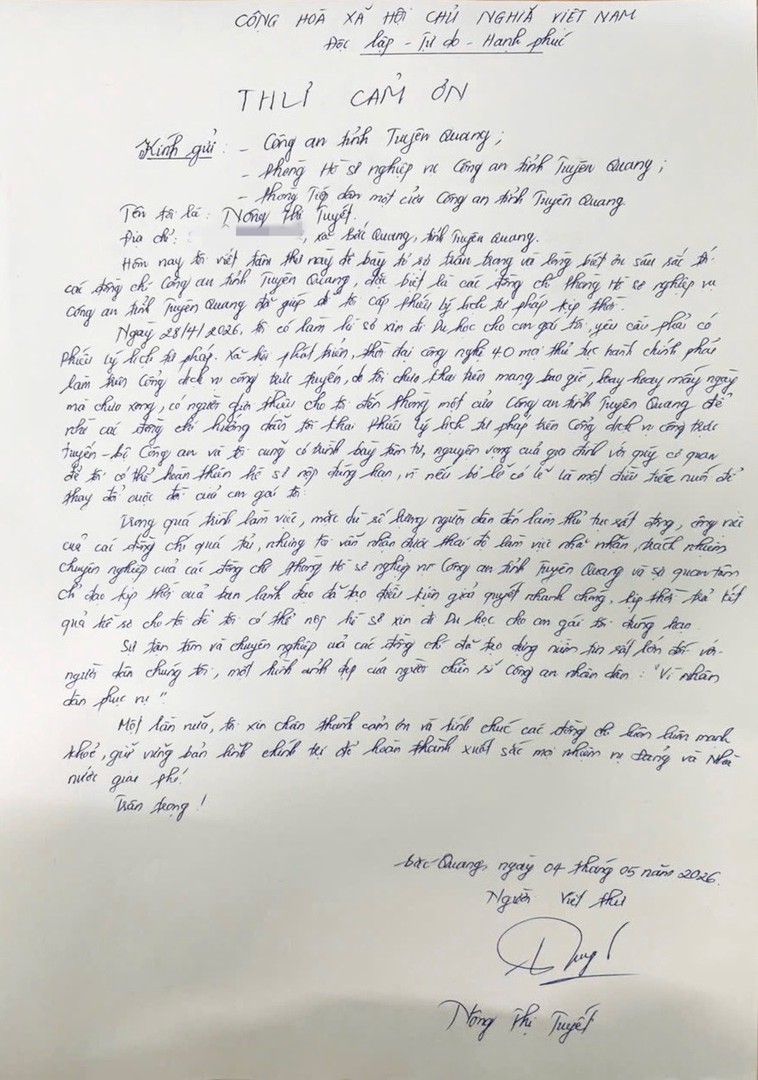 CỘNG HOÀ XÃ HỘI CHỦ NGHĨA VIỆT NAM
Độc lập - Tự do - Hạnh phúc
THƯ CẢM ƠN
Kính gửi: - Công an tỉnh Tuyên Quang;
- Phòng Hồ sơ nghiệp vụ Công an tỉnh Tuyên Quang;
- Phòng Tiếp dân một cửa Công an tỉnh Tuyên Quang.
Tên tôi là: Nông Thị Tuyết.
Địa chỉ: , xã Bắc Quang, tỉnh Tuyên Quang.
Hôm nay tôi viết tâm thư này để bày tỏ sự trân trọng và lòng biết ơn sâu sắc tới
các đồng chí Công an tỉnh Tuyên Quang, đặc biệt là các đồng chí phòng Hồ sơ nghiệp vụ
Công an tỉnh Tuyên Quang đã giúp đỡ tôi cấp phiếu lý lịch tư pháp kịp thời.
Ngày 28/4/2026, tôi có làm hồ sơ xin đi Du học cho con gái tôi, yêu cầu phải có
phiếu lý lịch tư pháp. Xã hội phát triển, thời đại công nghệ 40 mọi thủ tục hành chính phải
làm trên Cổng dịch vụ công trực tuyến, do tôi chưa khai trên mạng bao giờ, hoay hoay mấy ngày
mà chưa xong, có người giới thiệu cho tôi đến phòng một cửa Công an tỉnh Tuyên Quang để
nhờ các đồng chí hướng dẫn tôi khai phiếu lý lịch tư pháp trên Cổng dịch vụ công trực
tuyến - bộ Công an và tôi cũng có trình bày tâm tư, nguyện vọng của gia đình với quý cơ quan
để tôi có thể hoàn thiện hồ sơ nộp đúng hạn, vì nếu bỏ lỡ có lẽ là một điều tiếc nuối để
thay đổi cuộc đời của con gái tôi.
Trong quá trình làm việc, mặc dù số lượng người dân đến làm thủ tục rất đông, công việc
của các đồng chí quá tải, nhưng tôi vẫn nhận được thái độ làm việc nhã nhặn, trách nhiệm
chuyên nghiệp của các đồng chí phòng Hồ sơ nghiệp vụ Công an tỉnh Tuyên Quang và sự quan tâm
chỉ đạo kịp thời của ban lãnh đạo đã tạo điều kiện giải quyết nhanh chóng, kịp thời trả kết
quả hồ sơ cho tôi để tôi có thể nộp hồ sơ xin đi Du học cho con gái tôi đúng hạn.
Sự tận tâm và chuyên nghiệp của các đồng chí đã tạo dựng niềm tin rất lớn đối với
người dân chúng tôi, một hình ảnh đẹp của người chiến sĩ Công an nhân dân: "Vì nhân
dân phục vụ".
Một lần nữa, tôi xin chân thành cảm ơn và kính chúc các đồng chí luôn luôn mạnh
khoẻ, giữ vững bản lĩnh chính trị để hoàn thành xuất sắc mọi nhiệm vụ Đảng và Nhà
nước giao phó.
Trân trọng!
Bắc Quang, ngày 04 tháng 05 năm 2026.
Người viết thư
Nông Thị Tuyết